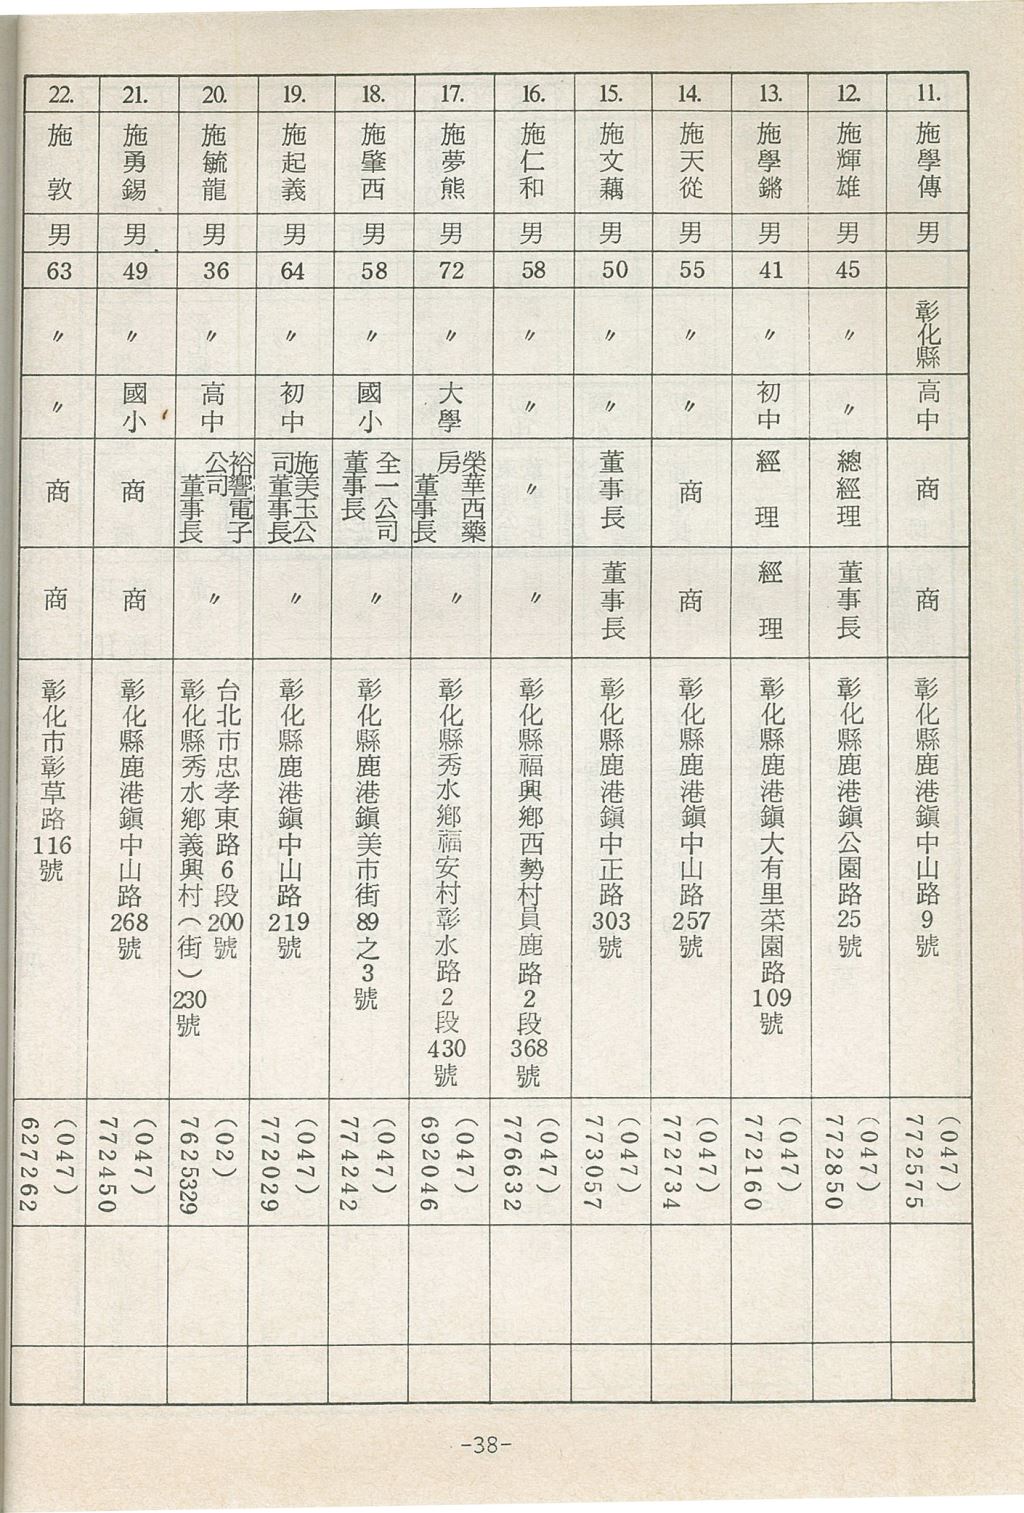 11.
施學傳
男
彰化縣
高中
商
商
彰化縣鹿港鎮中山路9號
(047)
772575
12.
施輝雄
男
45
〃
〃
總經理
董事長
彰化縣鹿港鎮公園路25號
(047)
772850
13.
施學鏘
男
41
〃
初中
經理
經理
彰化縣鹿港鎮大有里菜園路109號
(047)
772160
14.
施天從
男
55
〃
〃
商
商
彰化縣鹿港鎮中山路257號
(047)
772734
15.
施文藕
男
50
〃
〃
董事長
董事長
彰化縣鹿港鎮中正路303號
(047)
773057
16.
施仁和
男
58
〃
〃
〃
〃
彰化縣福興鄉西勢村員鹿路2段368號
(047)
776632
17.
施夢熊
男
72
〃
大學
榮華西藥
房
董事長
〃
彰化縣秀水鄉福安村彰水路2段430號
(047)
692046
18.
施肇西
男
58
〃
國小
全一公司
董事長
〃
彰化縣鹿港鎮美市街89之3號
(047)
774242
19.
施起義
男
64
〃
初中
施美玉公
司董事長
〃
彰化縣鹿港鎮中山路219號
(047)
772029
20.
施毓龍
男
36
〃
高中
裕響電子
公司
董事長
〃
台北市忠孝東路6段200號
彰化縣秀水鄉義興村(街)230號
(02)
7625329
21.
施勇錫
男
49
〃
國小
商
商
彰化縣鹿港鎮中山路268號
(047)
772450
22.
施敦
男
63
〃
〃
商
商
彰化市彰草路116號
(047)
627262
-38-